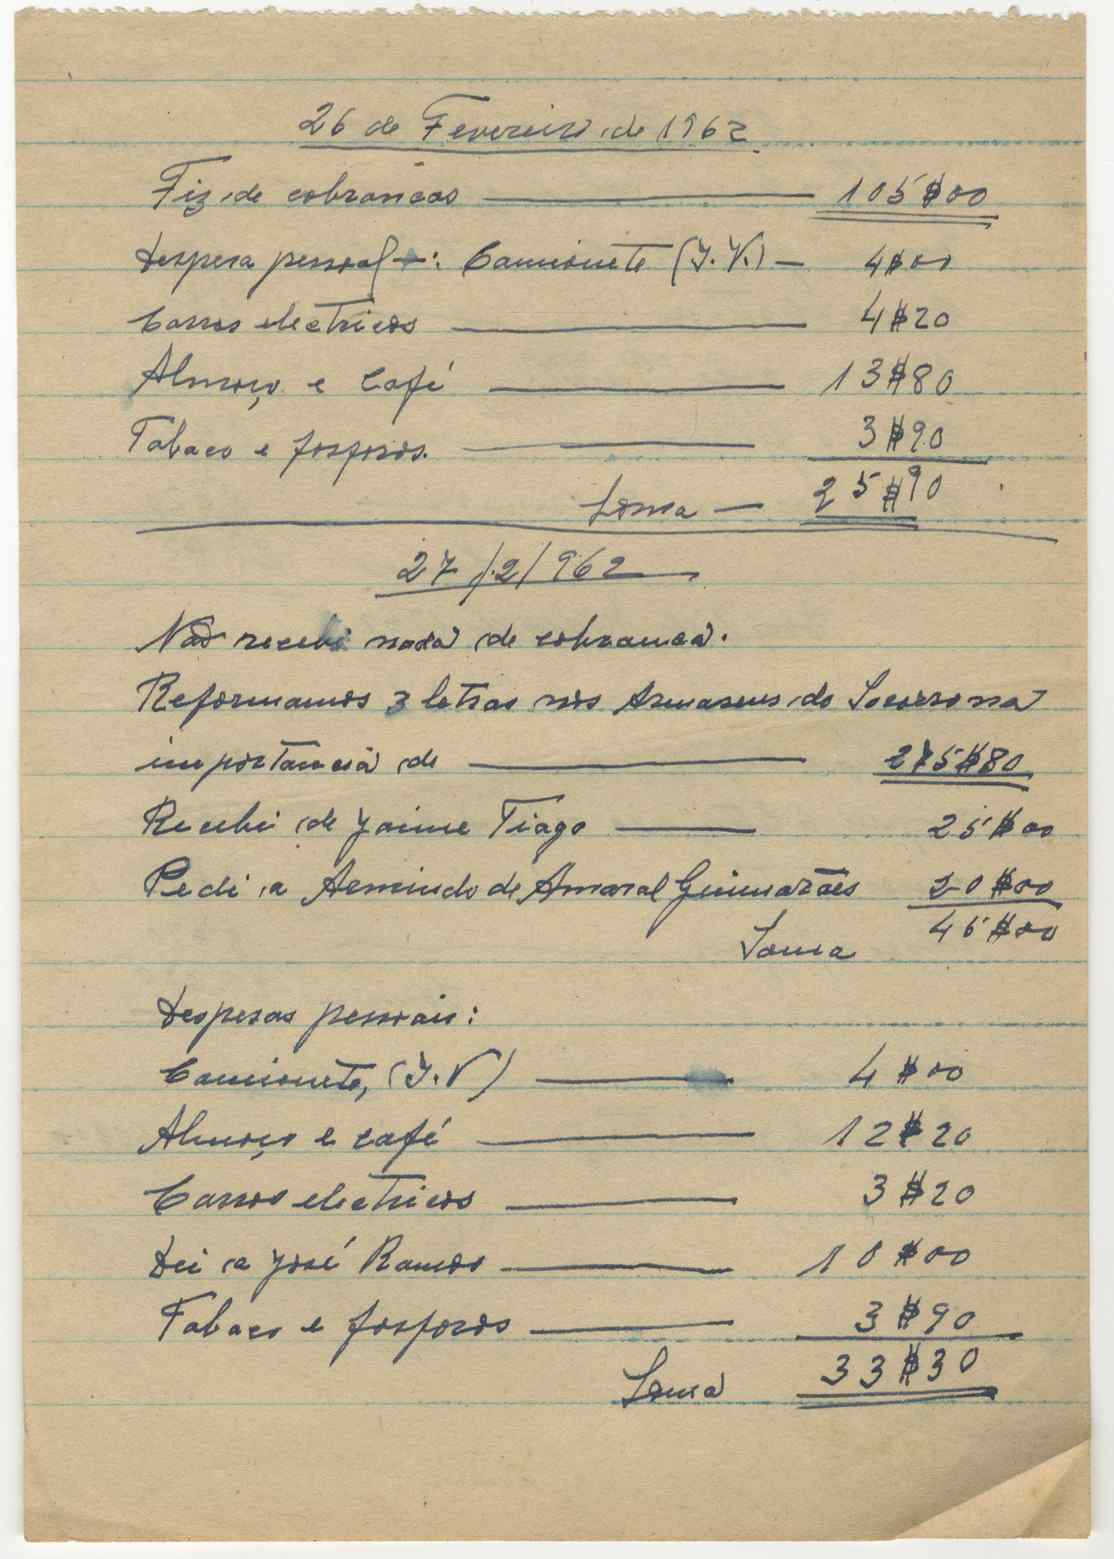 26 de Fevereiro de 1962
Fiz de cobranças — 105$00
Despesa pessoal —: Camionete (J.V.) — 4$00
Carros electricos — 4$20
Almoço e Café — 13$80
Tabaco e fosforos. — 3$90
Soma — 25$90
27/2/962
Não recebi nada de cobranca.
Reformamos 3 letras nos Armasens do Socorro na
importancia de — 275$80
Recebi de Jaime Tiago — 25$00
Pedi a Armindo de Amaral Guimarães 20$00
Soma 45$00
Despesas pessoais:
Camionete, (J.V) — 4$00
Almoço e café — 12$20
Carros electricos — 3$20
Dei a José Ramos — 10$00
Tabaco e fosforos — 3$90
Soma 33$30